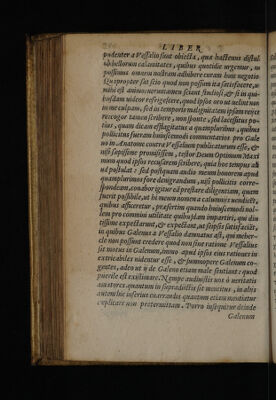 LIBER
pudenter à Vessalio sint obiecta, quæ hactenus distuli
ob bellorum calamitates, quibus quotidie urgemur, ut
possimus omnem nostram adhibere curam huic negotio
Quapropter sat scio quod non possum ita satisfacere, ut
mihi est animus: uerumtamen sciant studiosi, & si in qui-
busdam uideor refrigescere, quod ipsos oro ut uelint non
in me culpam, sed in temporis malignitatem ipsam reijce
re: cogor tamen scribere, non sponte, sed lacessitus po-
tius, quam dicam efflagitatus à quampluribus, quibus
pollicitus fueram huiuscemodi commentarios pro Gale
no in Anatome contra Vessalium publicaturum esse, &
nisi sæpissime promisissem, testor Deum Optimum Maxi
mum quod ipsos recusarem scribere, quia hoc tempus ali
ud postulat: sed postquam audio meum honorem apud
quamplurimos fore diminuendum, nisi pollicitis corre-
spondeam, conabor igitur ea præstare diligentiam, quam
fuerit possibile, ut in meum nomen a calumnijs uendicet,
quibus afficeretur, præsertim quando huiuscemodi nol-
lem pro communi utilitate quibusdam impartiri, qui diu
tissime expectarunt, & expectant, ut ipsis satisfaciã,
in quibus Galenus à Vessalio damnatus est, qui meher-
cle non possunt credere quod non sine ratione Vessalius
sit motus in Galenum, immo apud ipsos eius rationes in
extricabiles uidentur esse, & summopere Galenum co-
gentes, adeo ut de Galeno etiam male sentiant: quod
puerile est existimare. Nempe audiuistis uos ò ueritatis
amatores quantum in supradictis sit mentitus, in alijs
autem huc inferius enarrandis quantum etiam mentietur
explicare non pretermittam. Porro insequitur deinde
Galenum